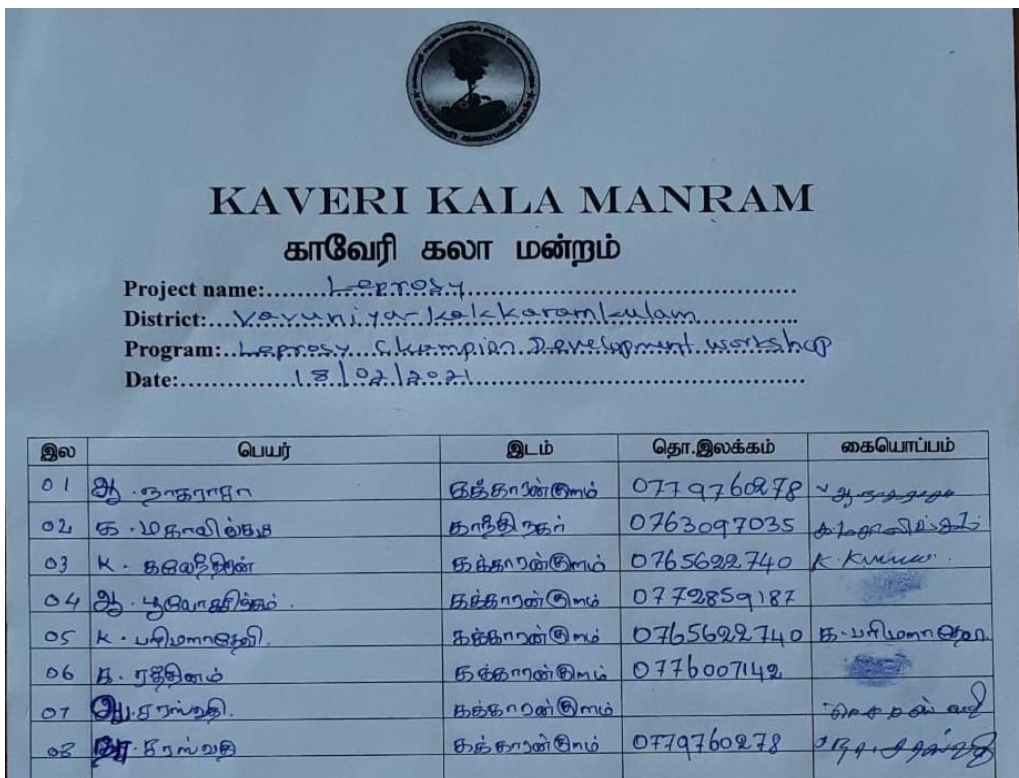 KAVERI KALA MANRAM
காவேரி கலா மன்றம்
Project name:........Leprosy........
District:...Vavuniya-kakkaramkulam........
Program:..Leprosy Champion Development workshop
Date:............18/02/2021........
இல பெயர் இடம் தொ.இலக்கம் கையொப்பம்
01 ஆ.நாகராசா கக்காரன்குளம் 0779760278
02 க.மகாலிங்கம் காந்திநகர் 0763097035 க.மகாலிங்கம்
03 K. கலேந்திரன் கக்காரன்குளம் 0765622740
04 ஆ. கக்காரன்குளம் 0772859187
05 K. பரிமளாதேவி. கக்காரன்குளம் 0765622740 க.பரிமளாதேவி
06 க. ரத்தினம் கக்காரன்குளம் 0776007142
07 சரஸ்வதி. கக்காரன்குளம்
08 சரஸ்வதி கக்காரன்குளம் 0779760278